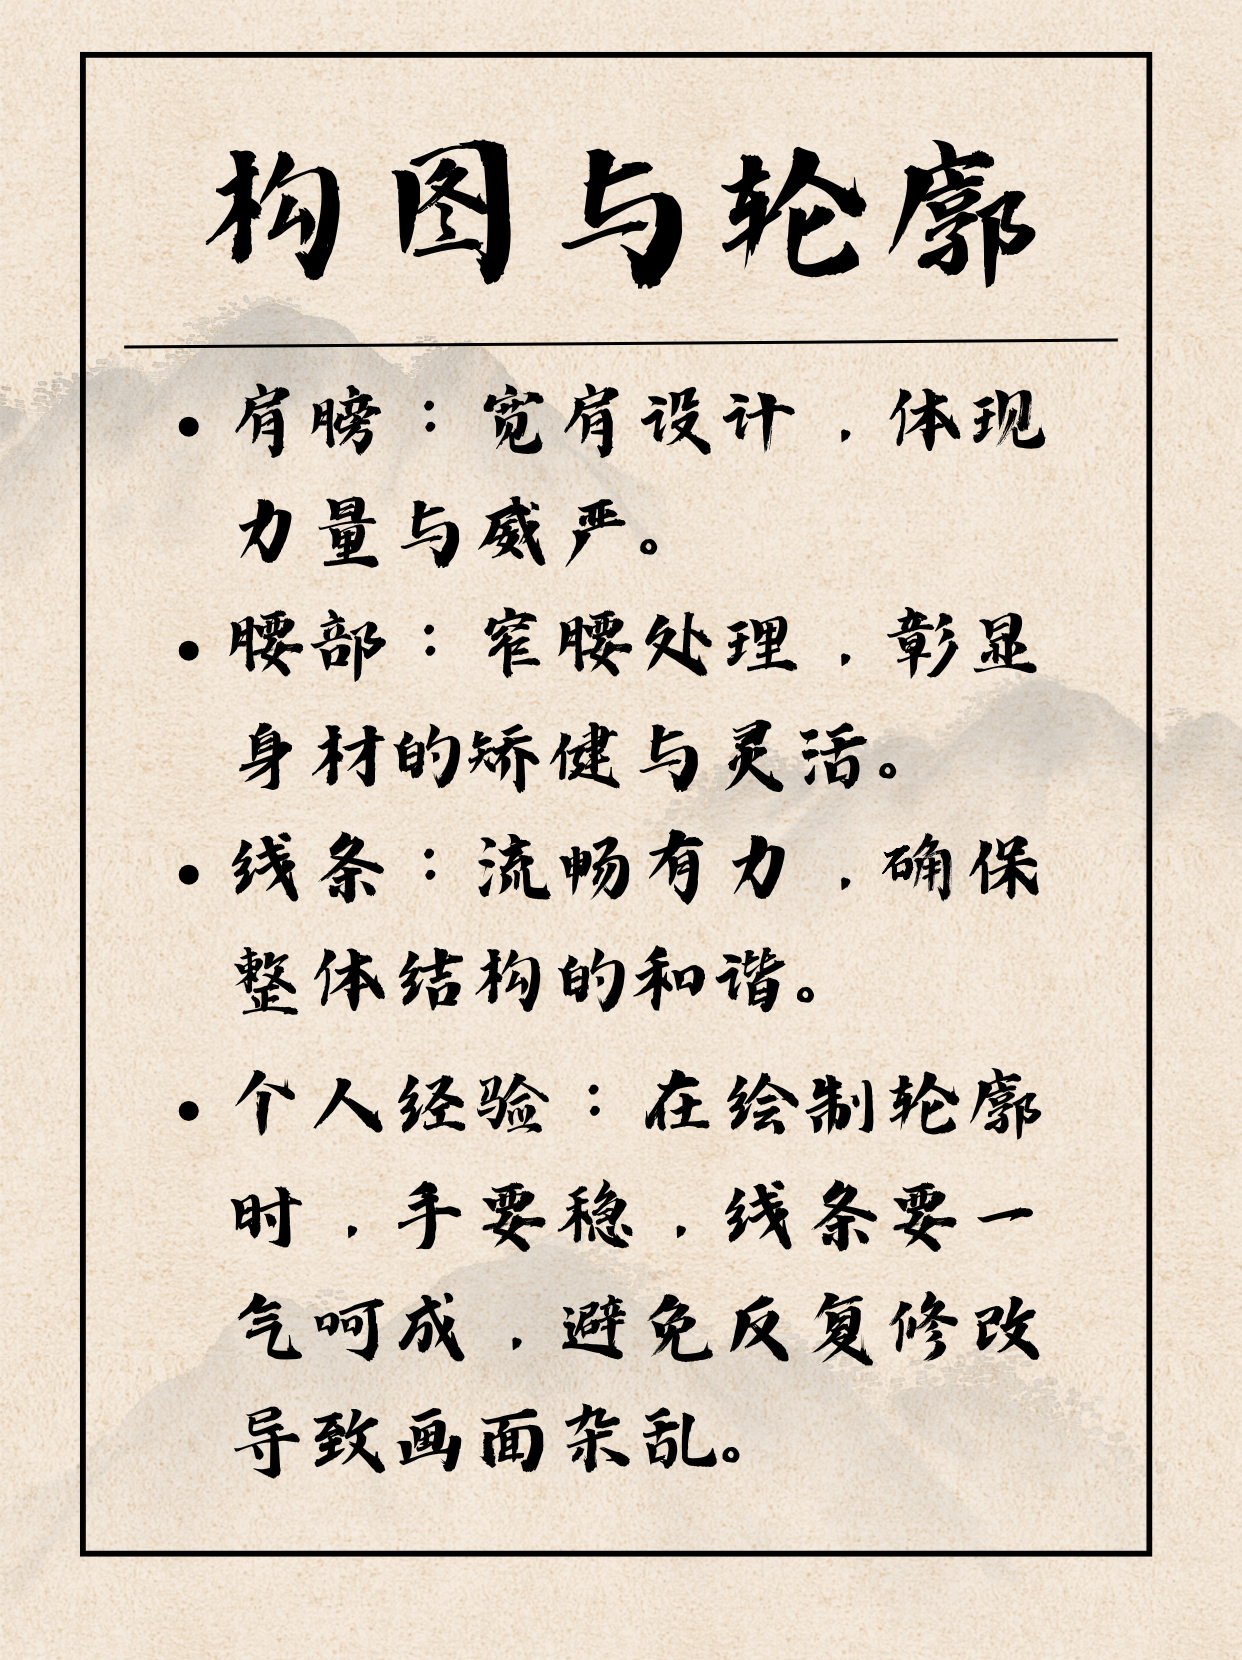 构图与轮廓
• 肩膀：宽肩设计，体现
力量与威严。
• 腰部：窄腰处理，彰显
身材的矫健与灵活。
• 线条：流畅有力，确保
整体结构的和谐。
• 个人经验：在绘制轮廓
时，手要稳，线条要一
气呵成，避免反复修改
导致画面杂乱。